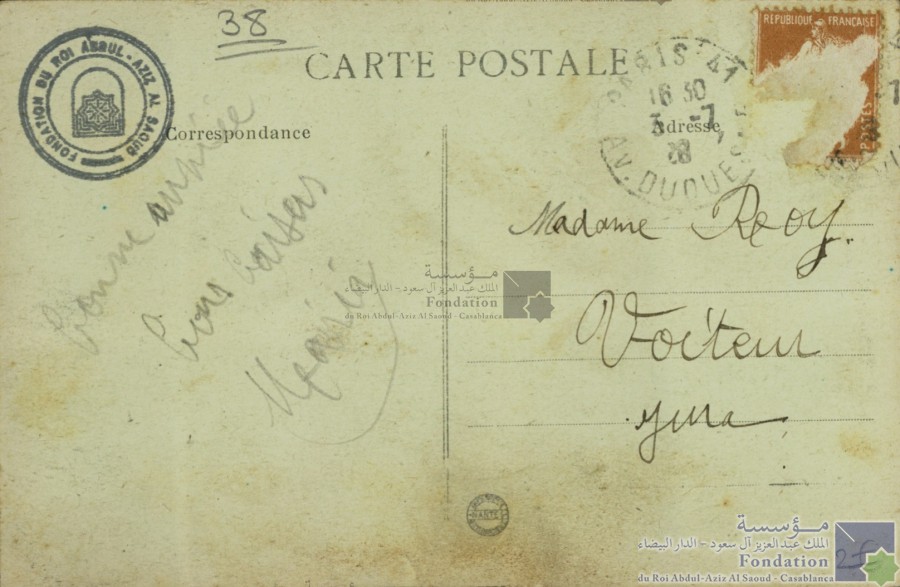 38
FONDATION DU ROI ABDUL-AZIZ AL SAOUD
CARTE POSTALE
Correspondance
Adresse
REPUBLIQUE FRANÇAISE
POSTES
PARIS 41
16 30
3 -7
28
AV. DUQUES
Bonne année
bons baisers
Maria
Madame Reoy
Voiteur
Jura
مؤسسة
الملك عبد العزيز آل سعود - الدار البيضاء
Fondation
du Roi Abdul-Aziz Al Saoud - Casablanca
مؤسسة
الملك عبد العزيز آل سعود - الدار البيضاء
Fondation
du Roi Abdul-Aziz Al Saoud - Casablanca
2f